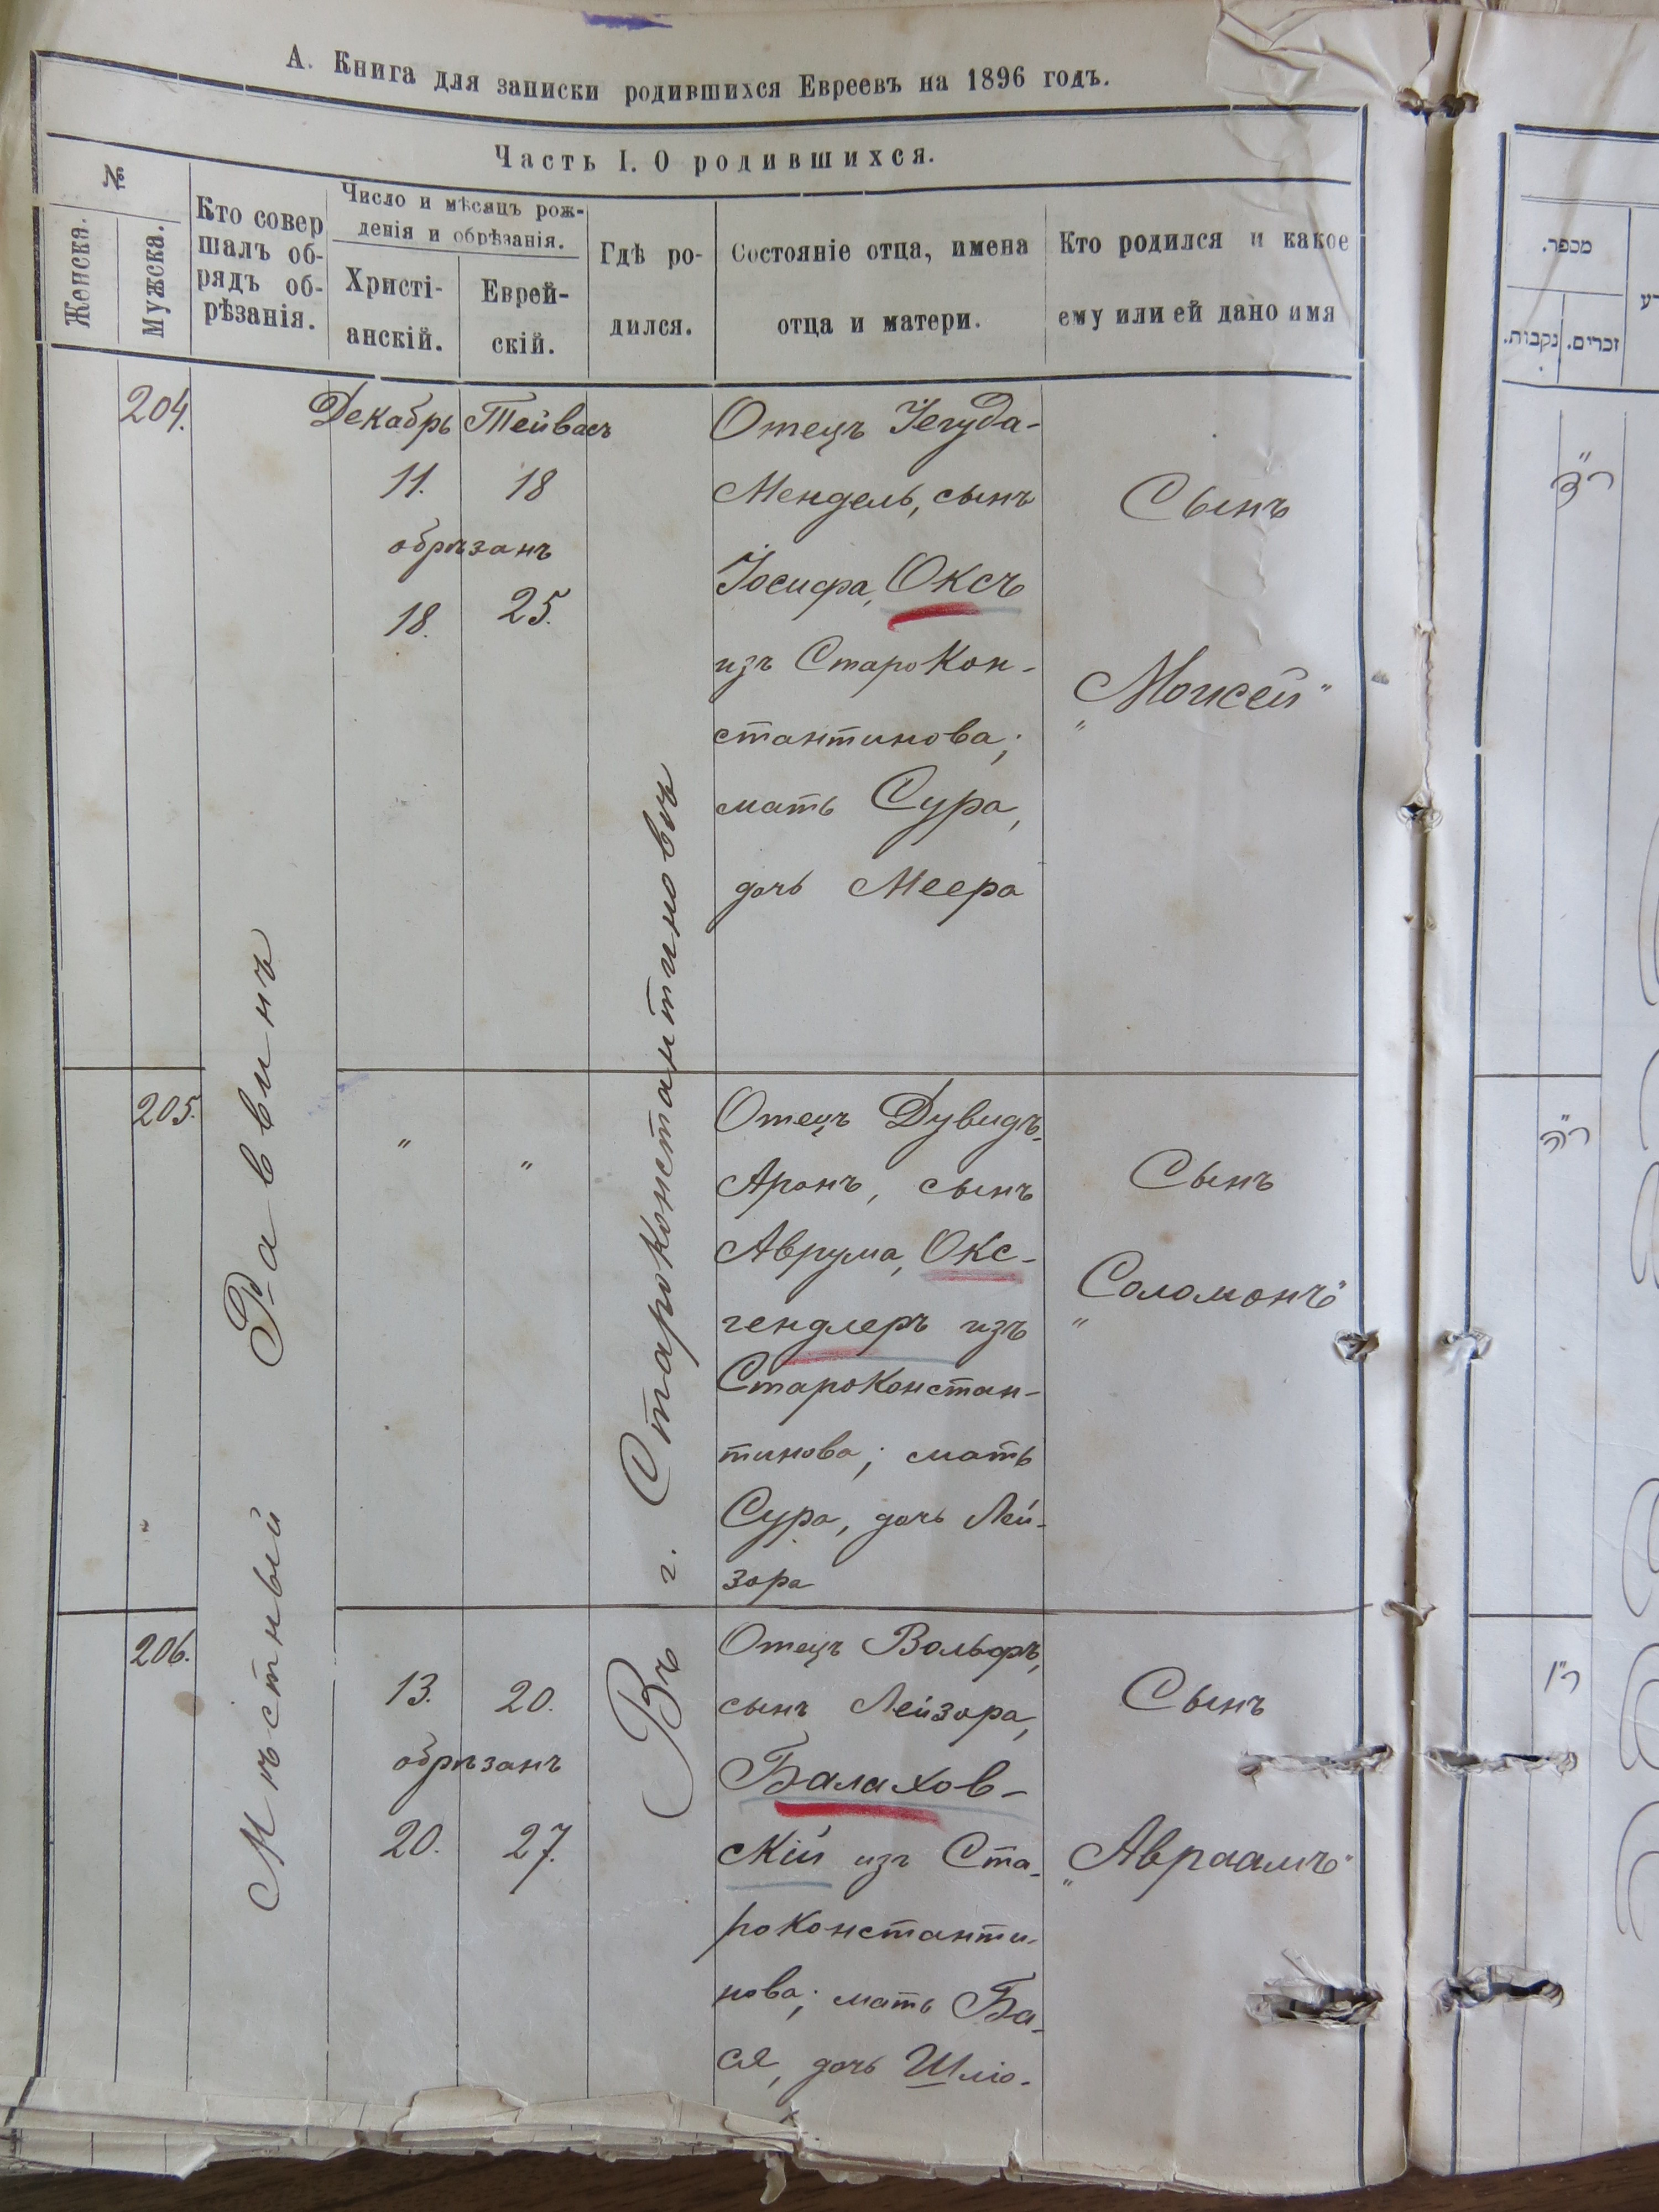 А. Книга для записки родившихся Евреевъ на 1896 годъ.
Часть I. О родившихся.
№
Женска.
Мужска.
Кто совер
шалъ об-
рядъ об-
рѣзанія.
Число и мѣсяцъ рож-
денія и обрѣзанія.
Христі-
анскій.
Еврей-
скій.
Гдѣ ро-
дился.
Состояніе отца, имена
отца и матери.
Кто родился и какое
ему или ей дано имя
204.
Декабрь
Тейвасъ
11.
18
обрѣзанъ
18.
25.
Отецъ Іегуда-
Мендель, сынъ
Іосифа, Оксъ
изъ Старокон-
стантинова;
мать Сура,
дочь Меера
Сынъ
"Моисей"
Мѣстный Раввинъ
Въ г. Староконстантиновѣ
205.
"
"
Отецъ Дувидъ-
Аронъ, сынъ
Аврума, Окс-
гендлеръ изъ
Староконстан-
тинова; мать
Сура, дочь Лей-
зора
Сынъ
"Соломонъ"
206.
13.
20.
обрѣзанъ
20.
27.
Отецъ Вольфъ,
сынъ Лейзора,
Балахов-
скій изъ Ста-
роконстанти-
нова; мать Ба-
ся, дочь Шлю-
Сынъ
"Авраамъ"
מכפר.
זכרים.
נקבות.
ר"ד
ר"ה
ר"ו